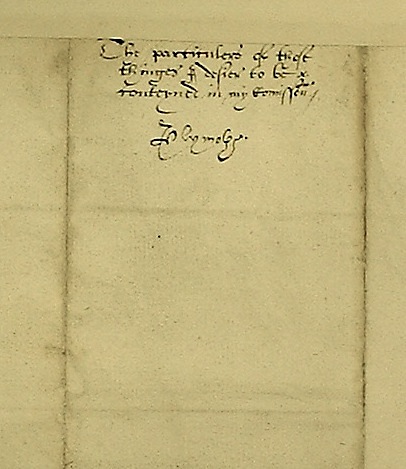 The particulers of those
thinges I desier to be
conteyned in my Comission
Plymothe